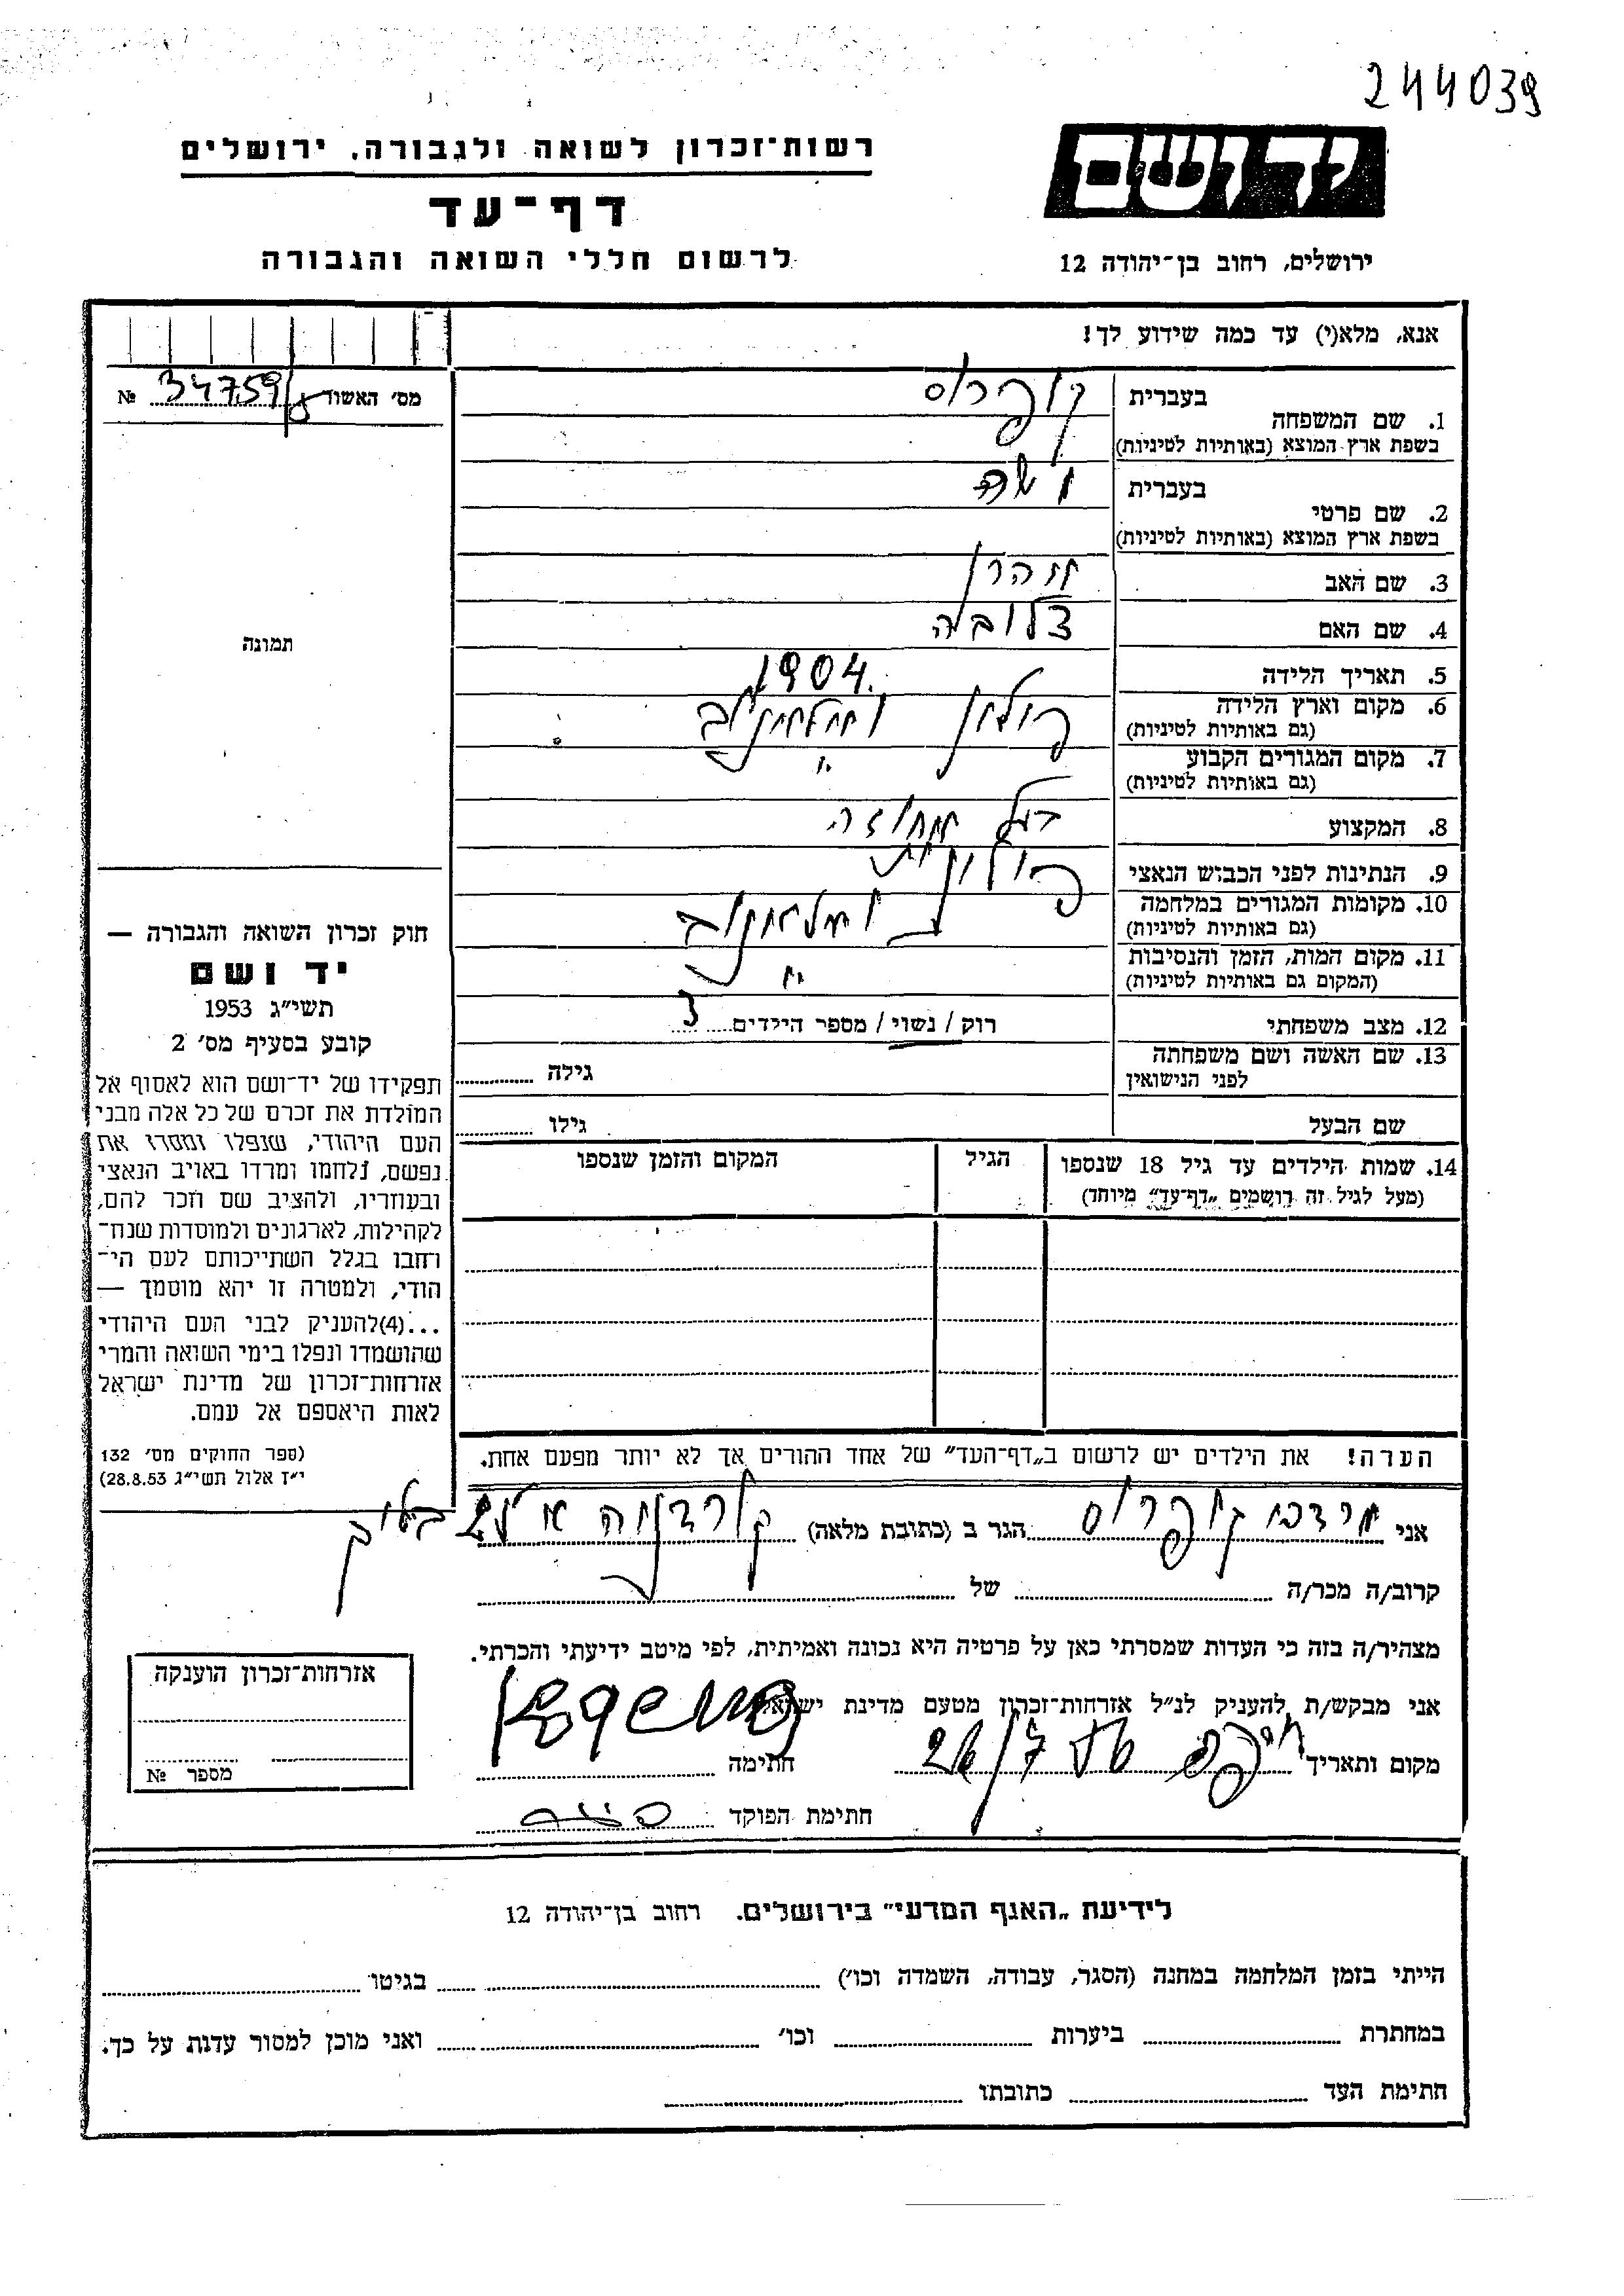 244039
יד ושם
רשות־זכרון לשואה ולגבורה, ירושלים
דף־עד
לרשום חללי השואה והגבורה
ירושלים, רחוב בן־יהודה 12
אנא, מלא(י) עד כמה שידוע לך!
מס׳ האשוד 34759 №
1. שם המשפחה בעברית קופרוס
בשפת ארץ המוצא (באותיות לטיניות)
2. שם פרטי בעברית משה
בשפת ארץ המוצא (באותיות לטיניות)
3. שם האב אהרן
4. שם האם
5. תאריך הלידה 1904
6. מקום וארץ הלידה פולין
(גם באותיות לטיניות)
7. מקום המגורים הקבוע
(גם באותיות לטיניות)
8. המקצוע בעל אחוזה
9. הנתינות לפני הכבוש הנאצי פולנית
10. מקומות המגורים במלחמה
(גם באותיות לטיניות)
11. מקום המות, הזמן והנסיבות
(המקום גם באותיות לטיניות)
12. מצב משפחתי רוק / נשוי / מספר הילדים 3
13. שם האשה ושם משפחתה גילה
לפני הנישואין
שם הבעל גילו
14. שמות הילדים עד גיל 18 שנספו הגיל המקום והזמן שנספו
(מעל לגיל זה רושמים „דף־עד” מיוחד)
תמונה
חוק זכרון השואה והגבורה —
יד ושם
תשי״ג 1953
קובע בסעיף מס׳ 2
תפקידו של יד־ושם הוא לאסוף אל
המולדת את זכרם של כל אלה מבני
העם היהודי, שנפלו ומסרו את
נפשם, נלחמו ומרדו באויב הנאצי
ובעוזריו, ולהציב שם וזכר להם,
לקהילות, לארגונים ולמוסדות שנח־
רחבו בגלל השתייכותם לעם הי־
הודי, ולמטרה זו יהא מוסמך —
...(4)להעניק לבני העם היהודי
שהושמדו ונפלו בימי השואה והמרי
אזרחות־זכרון של מדינת ישראל
לאות היאספם אל עמם.
(ספר החוקים מס׳ 132
י״ז אלול תשי״ג 28.8.53)
הערה! את הילדים יש לרשום ב„דף־העד” של אחד ההורים אך לא יותר מפעם אחת.
אני מרדכי קופרוס הגר ב (כתובת מלאה)
קרוב/ה מכר/ה של
מצהיר/ה בזה כי העדות שמסרתי כאן על פרטיה היא נכונה ואמיתית, לפי מיטב ידיעתי והכרתי.
אני מבקש/ת להעניק לנ״ל אזרחות־זכרון מטעם מדינת ישראל
מקום ותאריך חיפה 26/7 חתימה
חתימת הפוקד
אזרחות־זכרון הוענקה
מספר №
לידיעת „האגף המדעי” בירושלים. רחוב בן־יהודה 12
הייתי בזמן המלחמה במחנה (הסגר, עבודה, השמדה וכו׳) בגיטו
במחתרת ביערות וכו׳ ואני מוכן למסור עדות על כך.
חתימת העד כתובתו